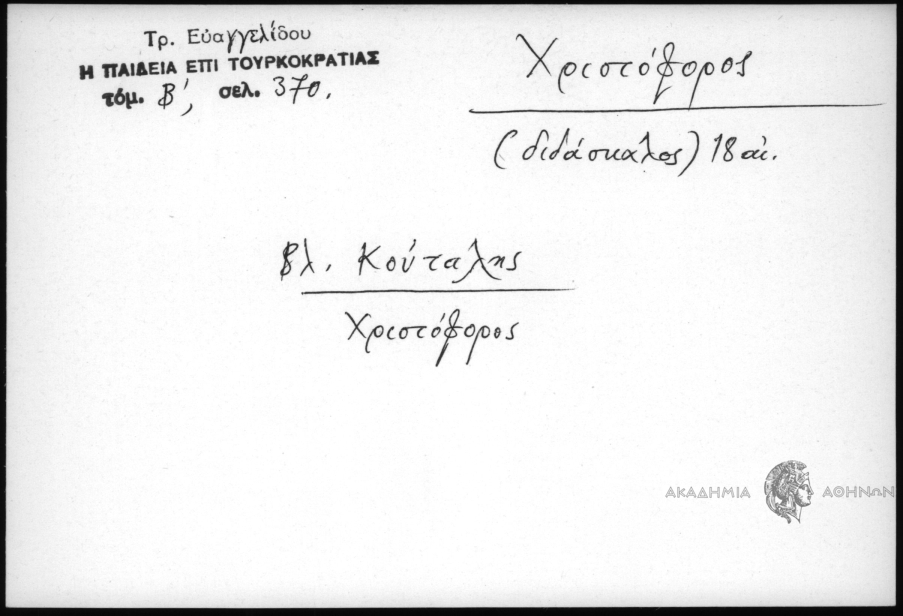 Τρ. Εὐαγγελίδου
Η ΠΑΙΔΕΙΑ ΕΠΙ ΤΟΥΡΚΟΚΡΑΤΙΑΣ
τόμ. Β', σελ. 370.
Χριστόφορος
(διδάσκαλος) 18 αἰ.
βλ. Κούταλης
Χριστόφορος
ΑΚΑΔΗΜΙΑ ΑΘΗΝΩΝ